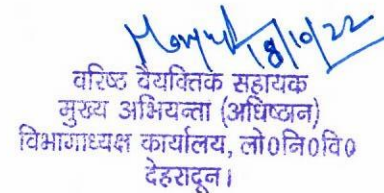 18/10/22
वरिष्ठ वैयक्तिक सहायक
मुख्य अभियन्ता (अधिष्ठान)
विभागाध्यक्ष कार्यालय, लो०नि०वि०
देहरादून।